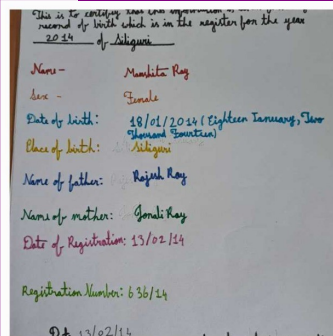 This is to certify that the information
record of birth which is in the register for the year
2014 of Siliguri
Name - Manshita Roy
Sex - Female
Date of birth: 18/01/2014 (Eighteen January, Two
Thousand Fourteen)
Place of birth: Siliguri
Name of father: Rajesh Roy
Name of mother: Jonali Roy
Date of Registration: 13/02/14
Registration Number: 636/14
13/02/14